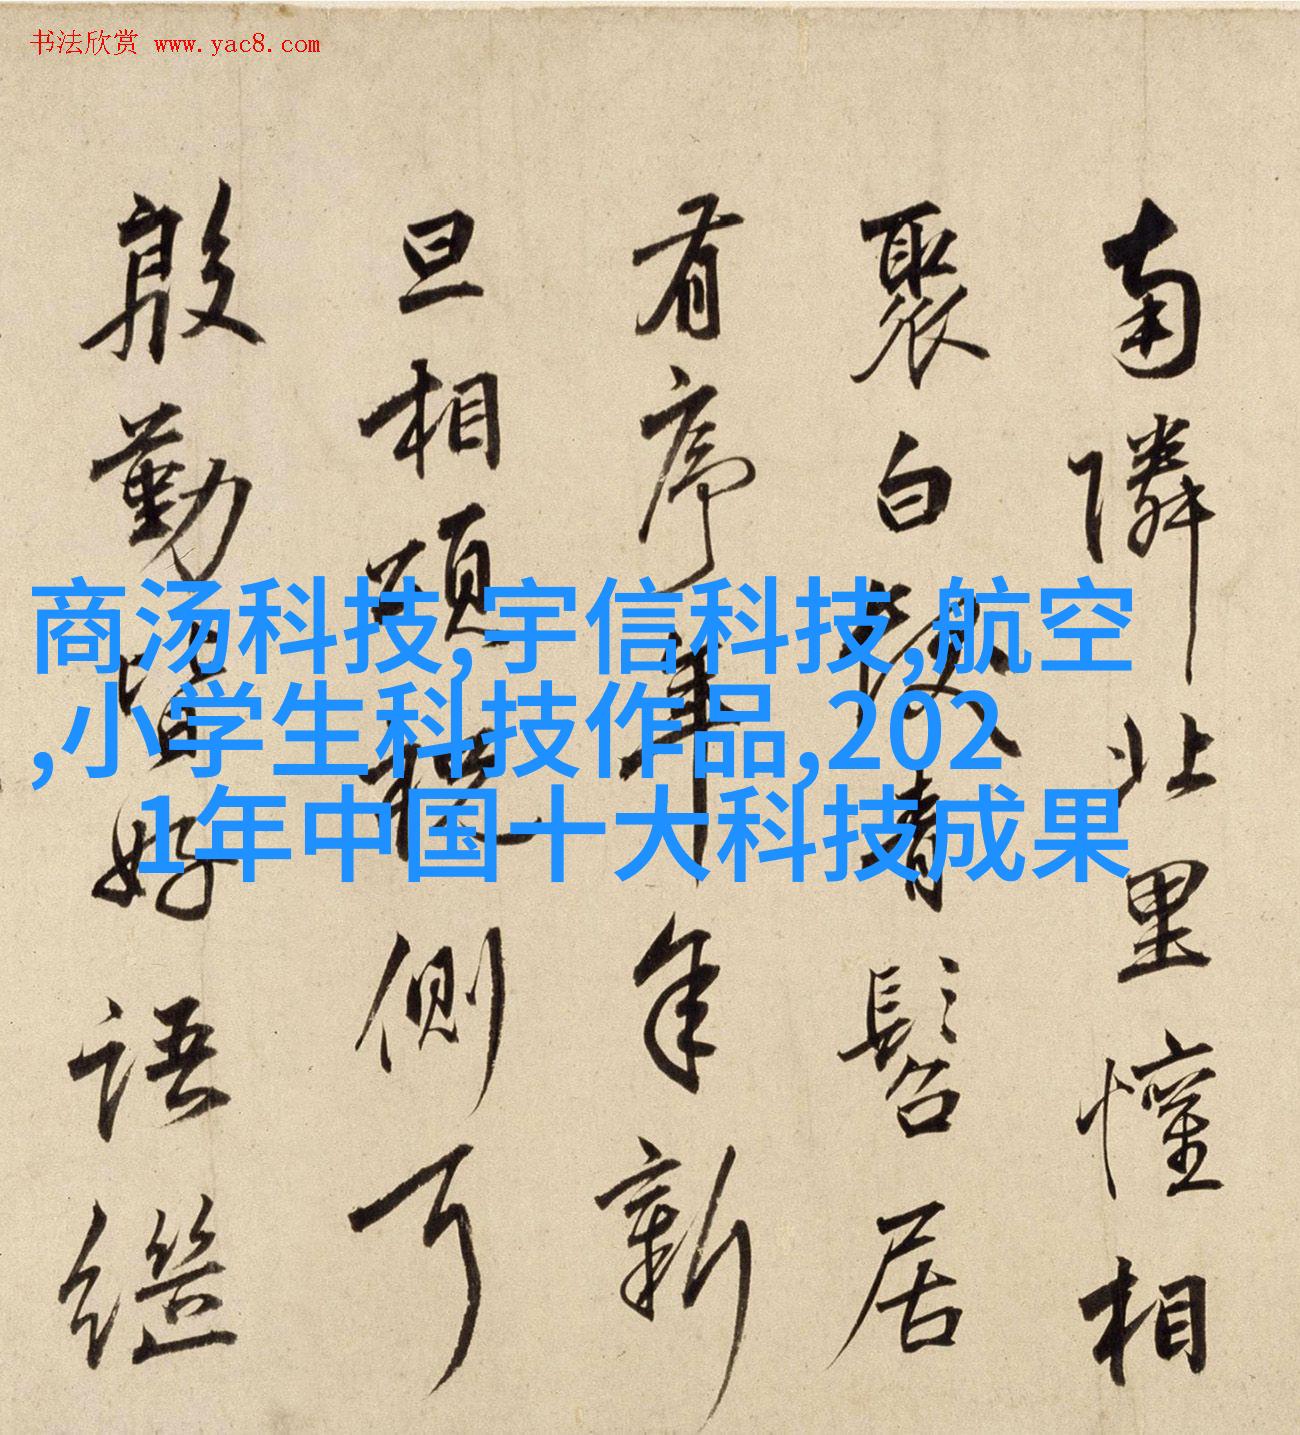 书法欣赏 www.yac8.com
南隣北里懽相
聚白青髫居
有序年年新
旦相側
殷勤皆好語繼
商汤科技,宇信科技,航空
,小学生科技作品,202
1年中国十大科技成果